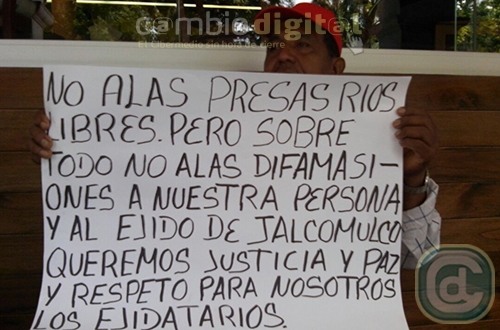 cambiodigital
El Cibermedio sin hora de cierre
NO ALAS PRESAS RIOS
LIBRES. PERO SOBRE
TODO NO ALAS DIFAMASI-
ONES A NUESTRA PERSONA
Y AL EJIDO DE JALCOMULCO
QUEREMOS JUSTICIA Y PAZ
Y RESPETO PARA NOSOTROS
LOS EJIDATARIOS.